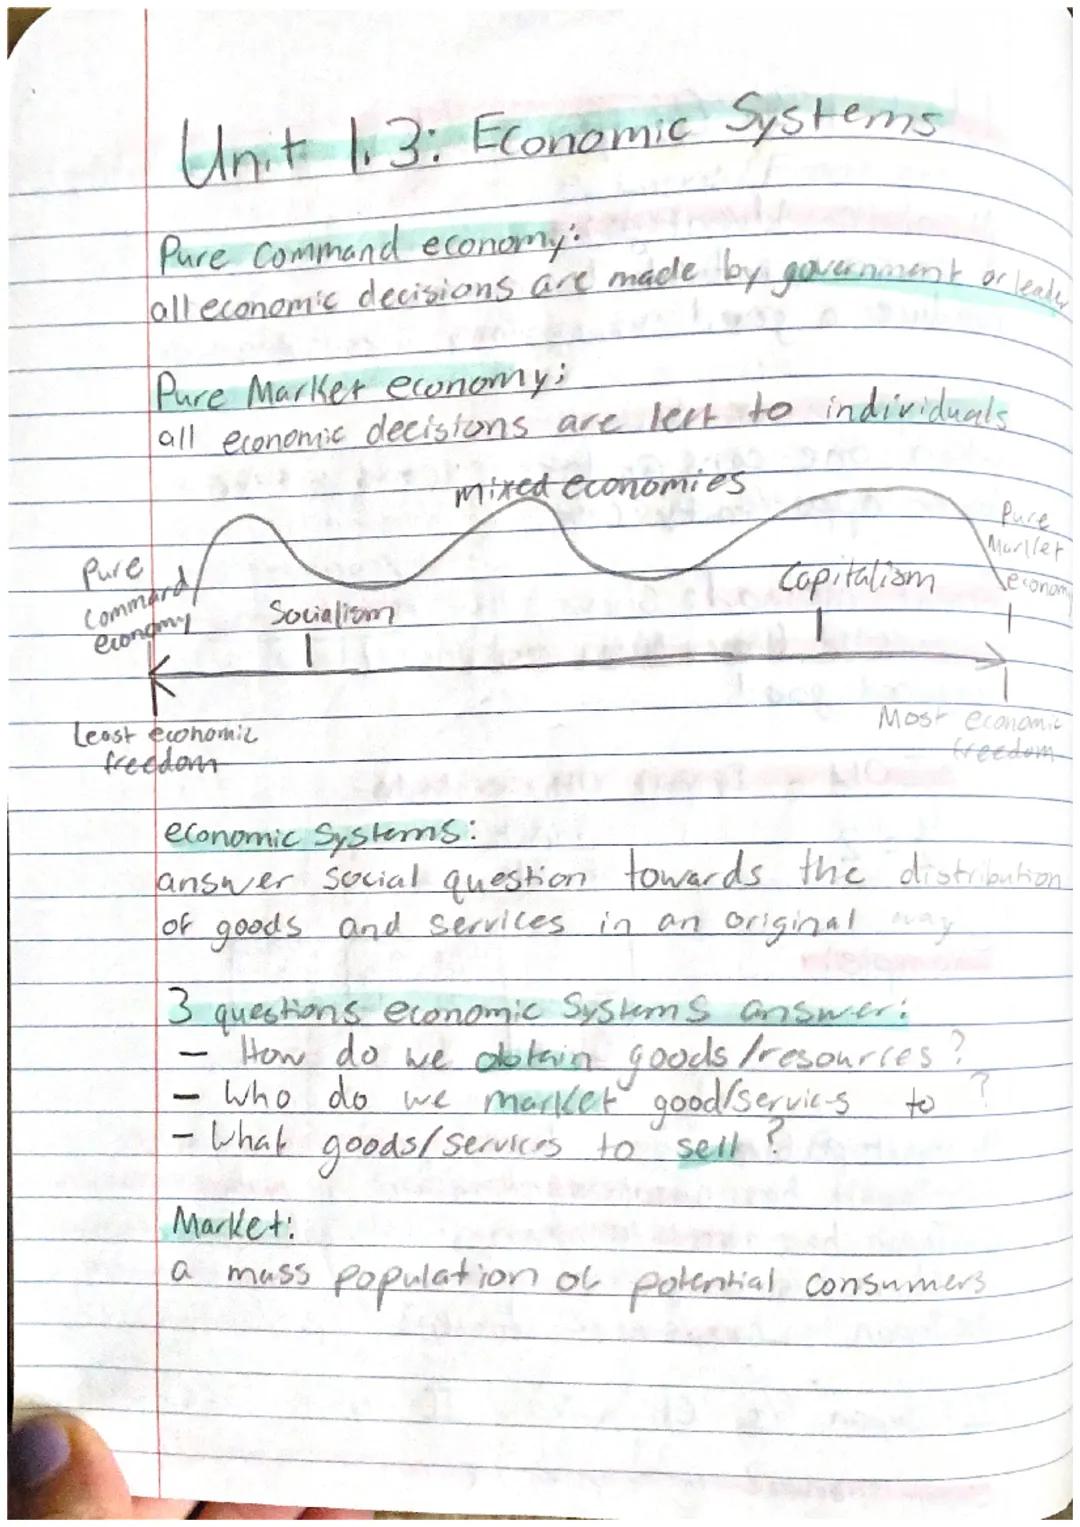 Unit 1.3: Economic Systems
Pure Command economy:
all economic decisions are made by government or leader
Pure Market economy:
all economic decisions are left to individuals
mixed economies
Pure
command
economy
Socialism
Capitalism
Pure
Market
economy
Least economic
freedom
Most economic
freedom
economic Systems:
answer social question towards the distribution
of goods and services in an original way
3 questions economic Systems answer:
- How do we obtain goods/resources?
- Who do we market good/services to?
- What goods/services to sell?
Market:
a mass population of potential consumers